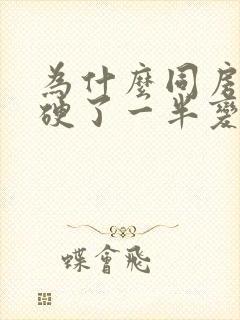 為什麼同房
硬了一半變
蝶會飛